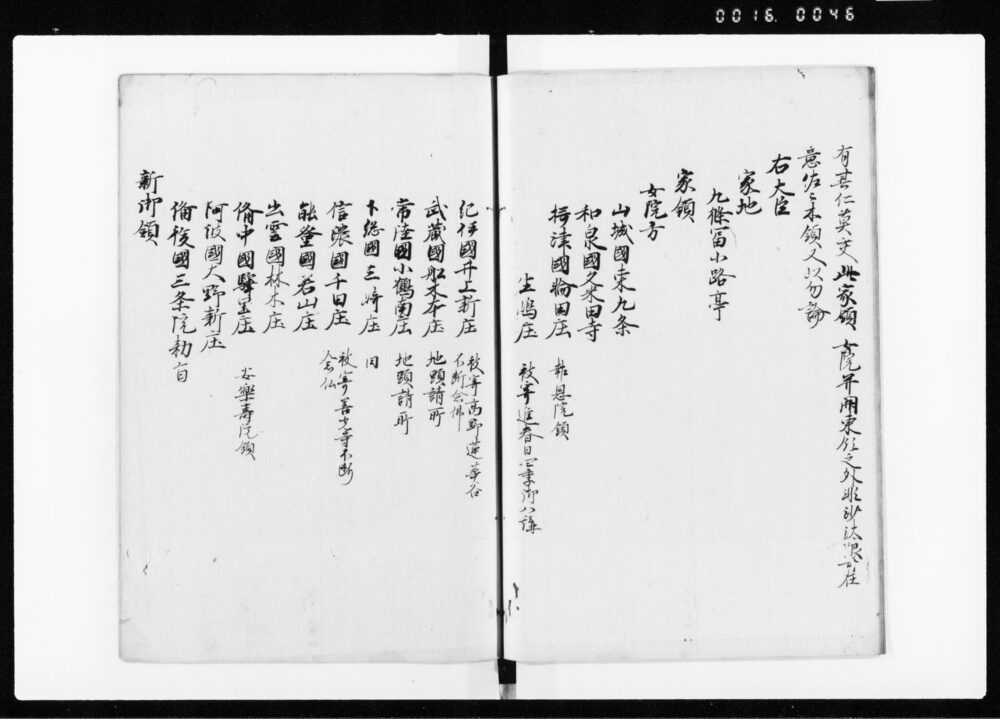 0016. 0046
有其仁莫交此家領 女院并関東伝之外非沙汰限註在
意 本領又以勿論
右大臣
家地
九條冨小路亭
家領
女院方
山城國東九条
和泉國久米田寺
摂津國輪田庄 報恩院領
生嶋庄 被寄進春日四季御八講
紀伊國井上新庄 被寄高野蓮華谷
不断念佛
武蔵國船木本庄 地頭請所
常陸國小鶴南庄 地頭請所
下総國三崎庄 同
信濃國千田庄 被寄善光寺不断
念仏
能登國若山庄
出雲國林木庄
備中國驛里庄 安樂寿院領
阿波國大野新庄
備後國三条院勅旨
新御領